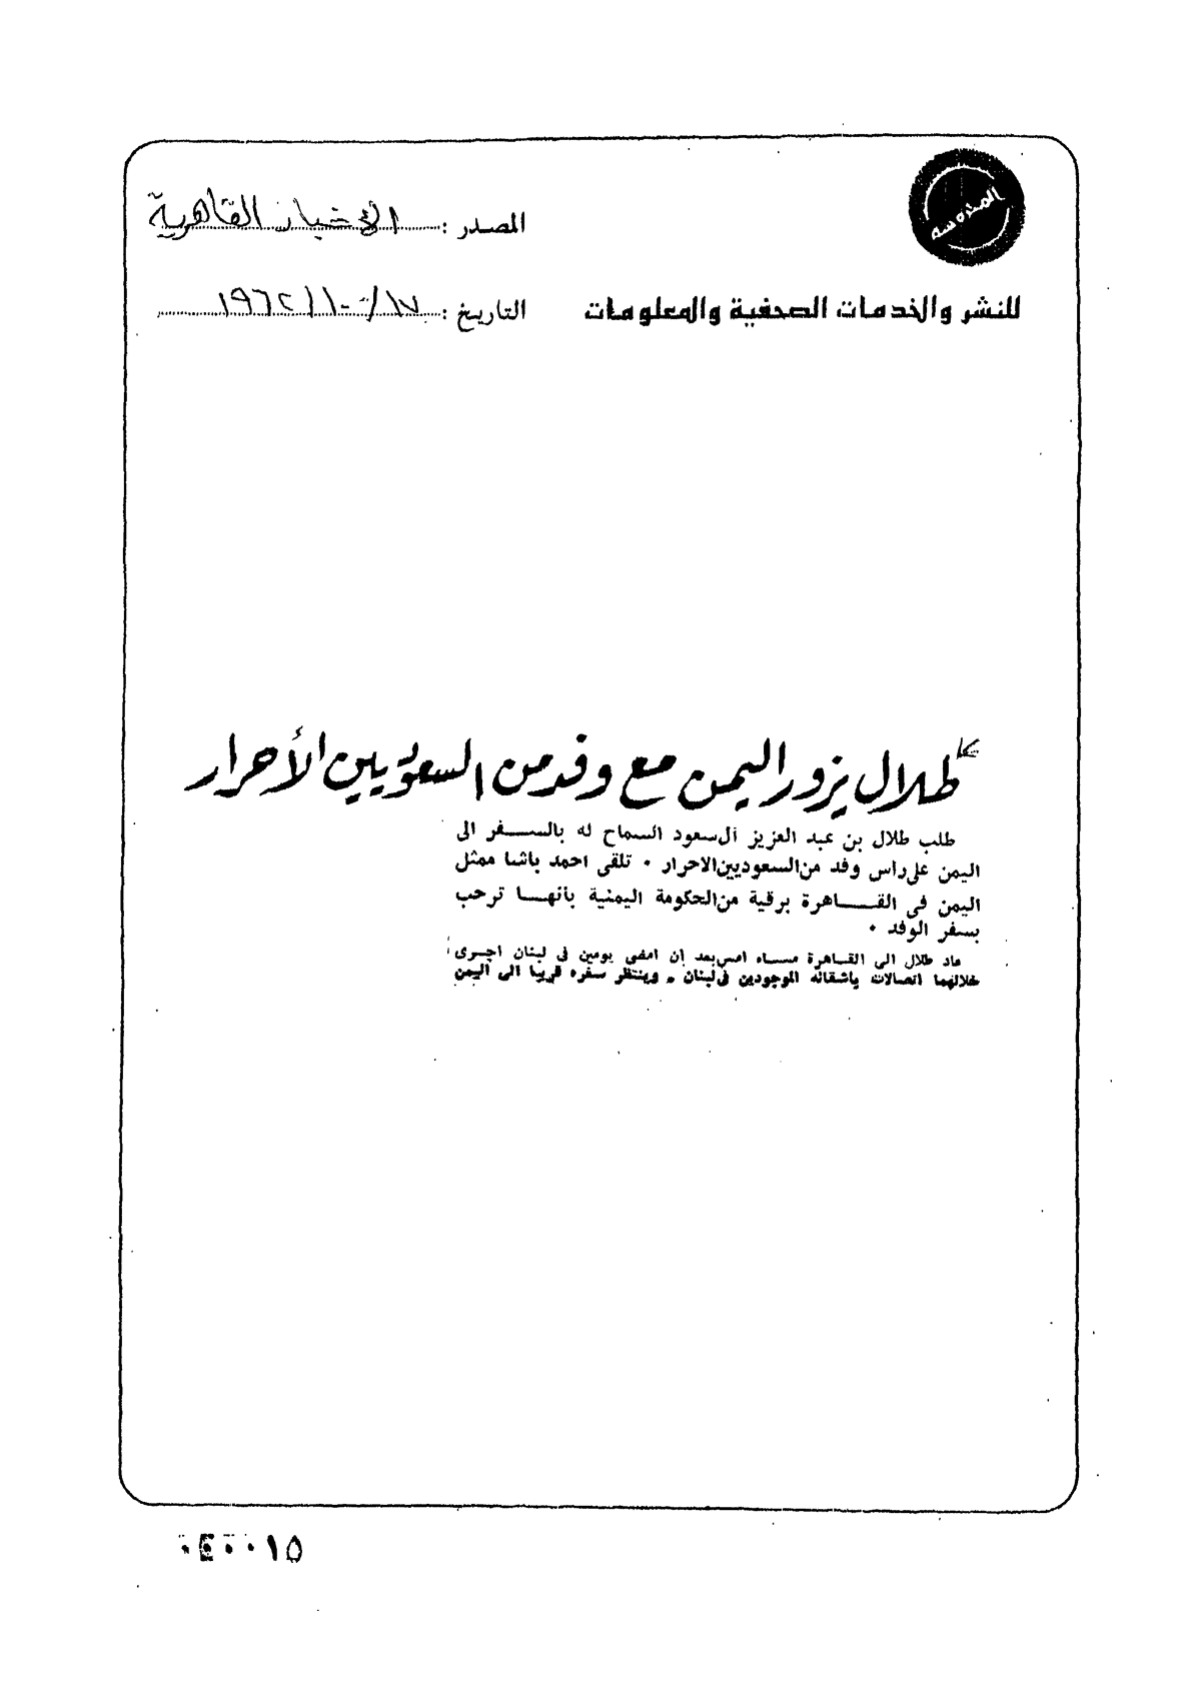 المحروسة
المصدر : الأخبار القاهرية
للنشر والخدمات الصحفية والمعلومات
التاريخ : ١٧/ ١٠/ ١٩٦٢
طلال يزور اليمن مع وفد من السعوديين الأحرار
طلب طلال بن عبد العزيز آل سعود السماح له بالسفر الى
اليمن على رأس وفد من السعوديين الاحرار ٠ تلقى احمد باشا ممثل
اليمن فى القاهرة برقية من الحكومة اليمنية بأنها ترحب
بسفر الوفد ٠
عاد طلال الى القاهرة مساء امس بعد ان امضى يومين فى لبنان اجرى
خلالهما اتصالات باشقائه الموجودين فى لبنان . وينتظر سفره قريبا الى اليمن
٠٤٠٠١٥